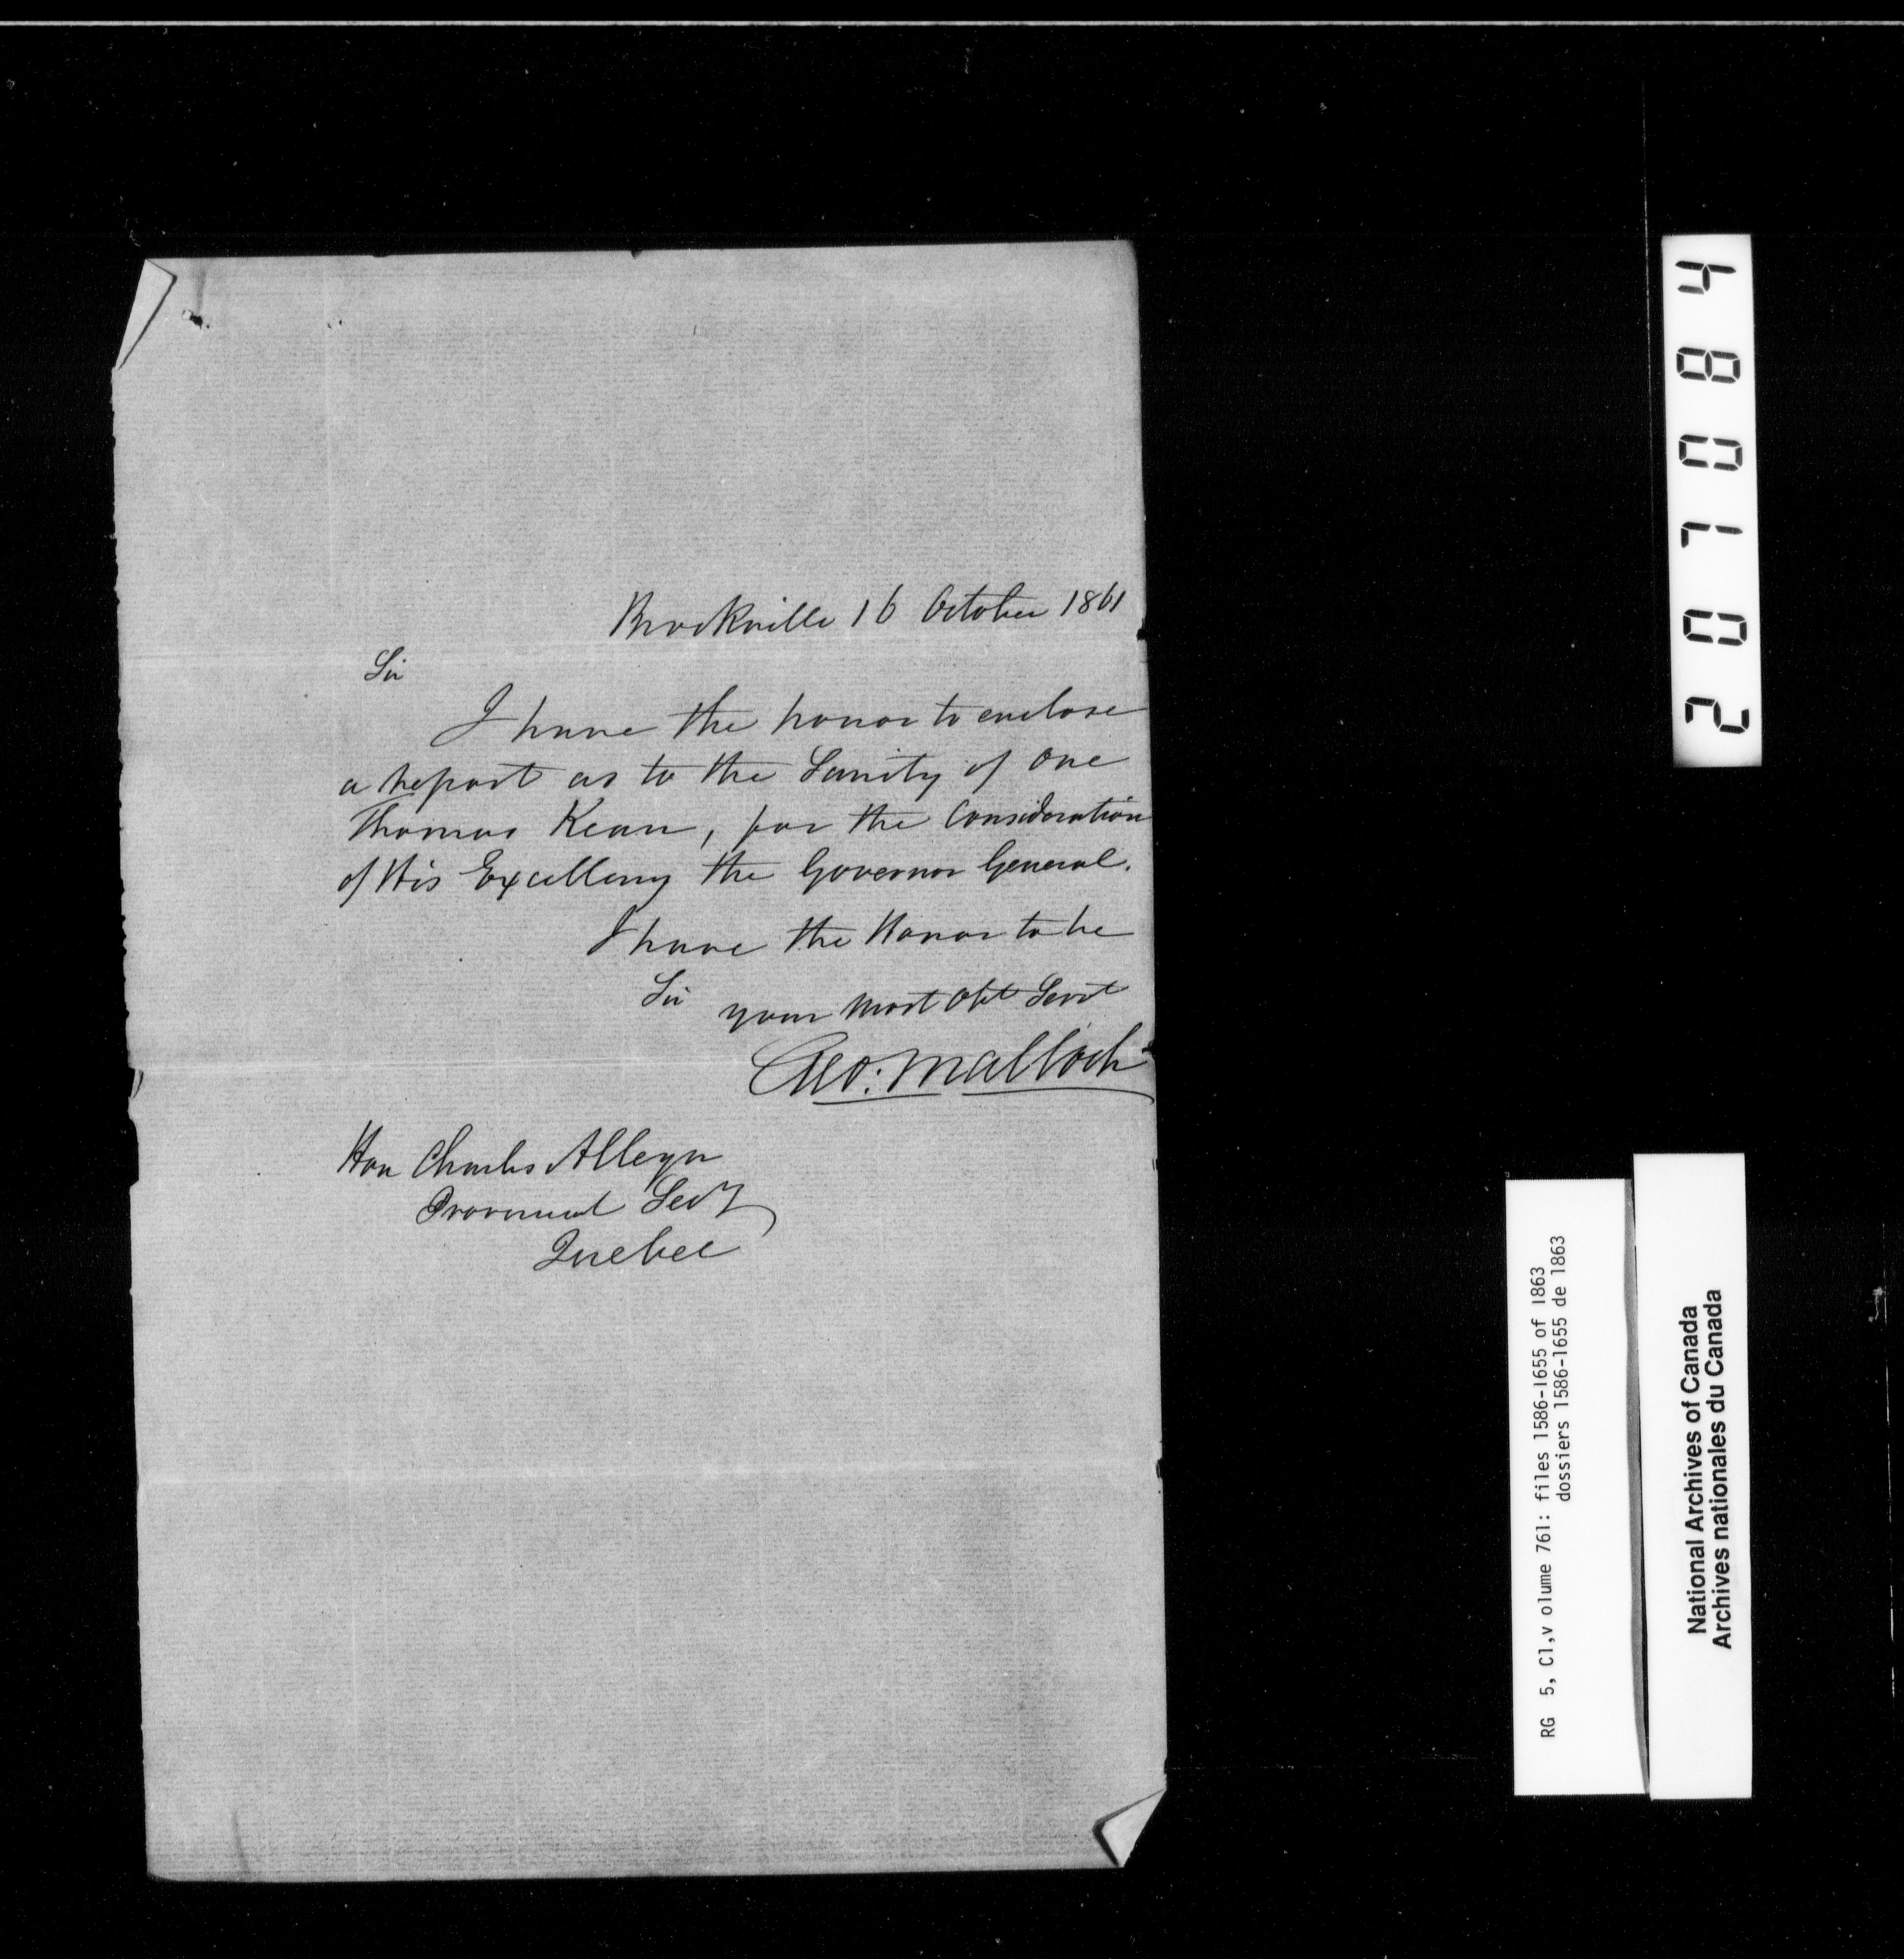 Brockville 16 October 1861
Sir
I have the honor to enclose
a report as to the Sanity of one
Thomas Kean, for the Consideration
of His Excellency the Governor General.
I have the Honor to be
Sir your most Obt Servt
Geo: Malloch
Hon Charles Alleyn
Provincial Secy
Quebec
207084
RG 5, C1,v olume 761: files 1586-1655 of 1863
dossiers 1586-1655 de 1863
National Archives of Canada
Archives nationales du Canada